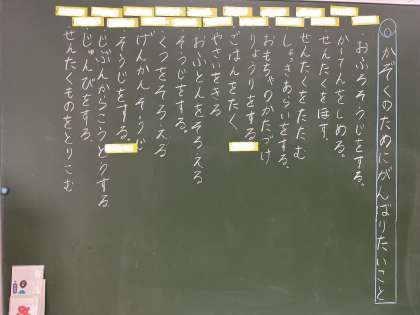 かぞくのためにがんばりたいこと
・おふろそうじをする。
かーてんをしめる。
せんたくをほす。
せんたくをたたむ
しょっきあらいをする。
おもちゃのかたづけ
りょうりをする
ごはんをたく
やさいをきる
おふとんをそろえる
そうじをする。
くつをそろえる
げんかんそうじ
そうじをする。
じぶんからこうどうする
じゅんびをする。
せんたくものをとりこむ